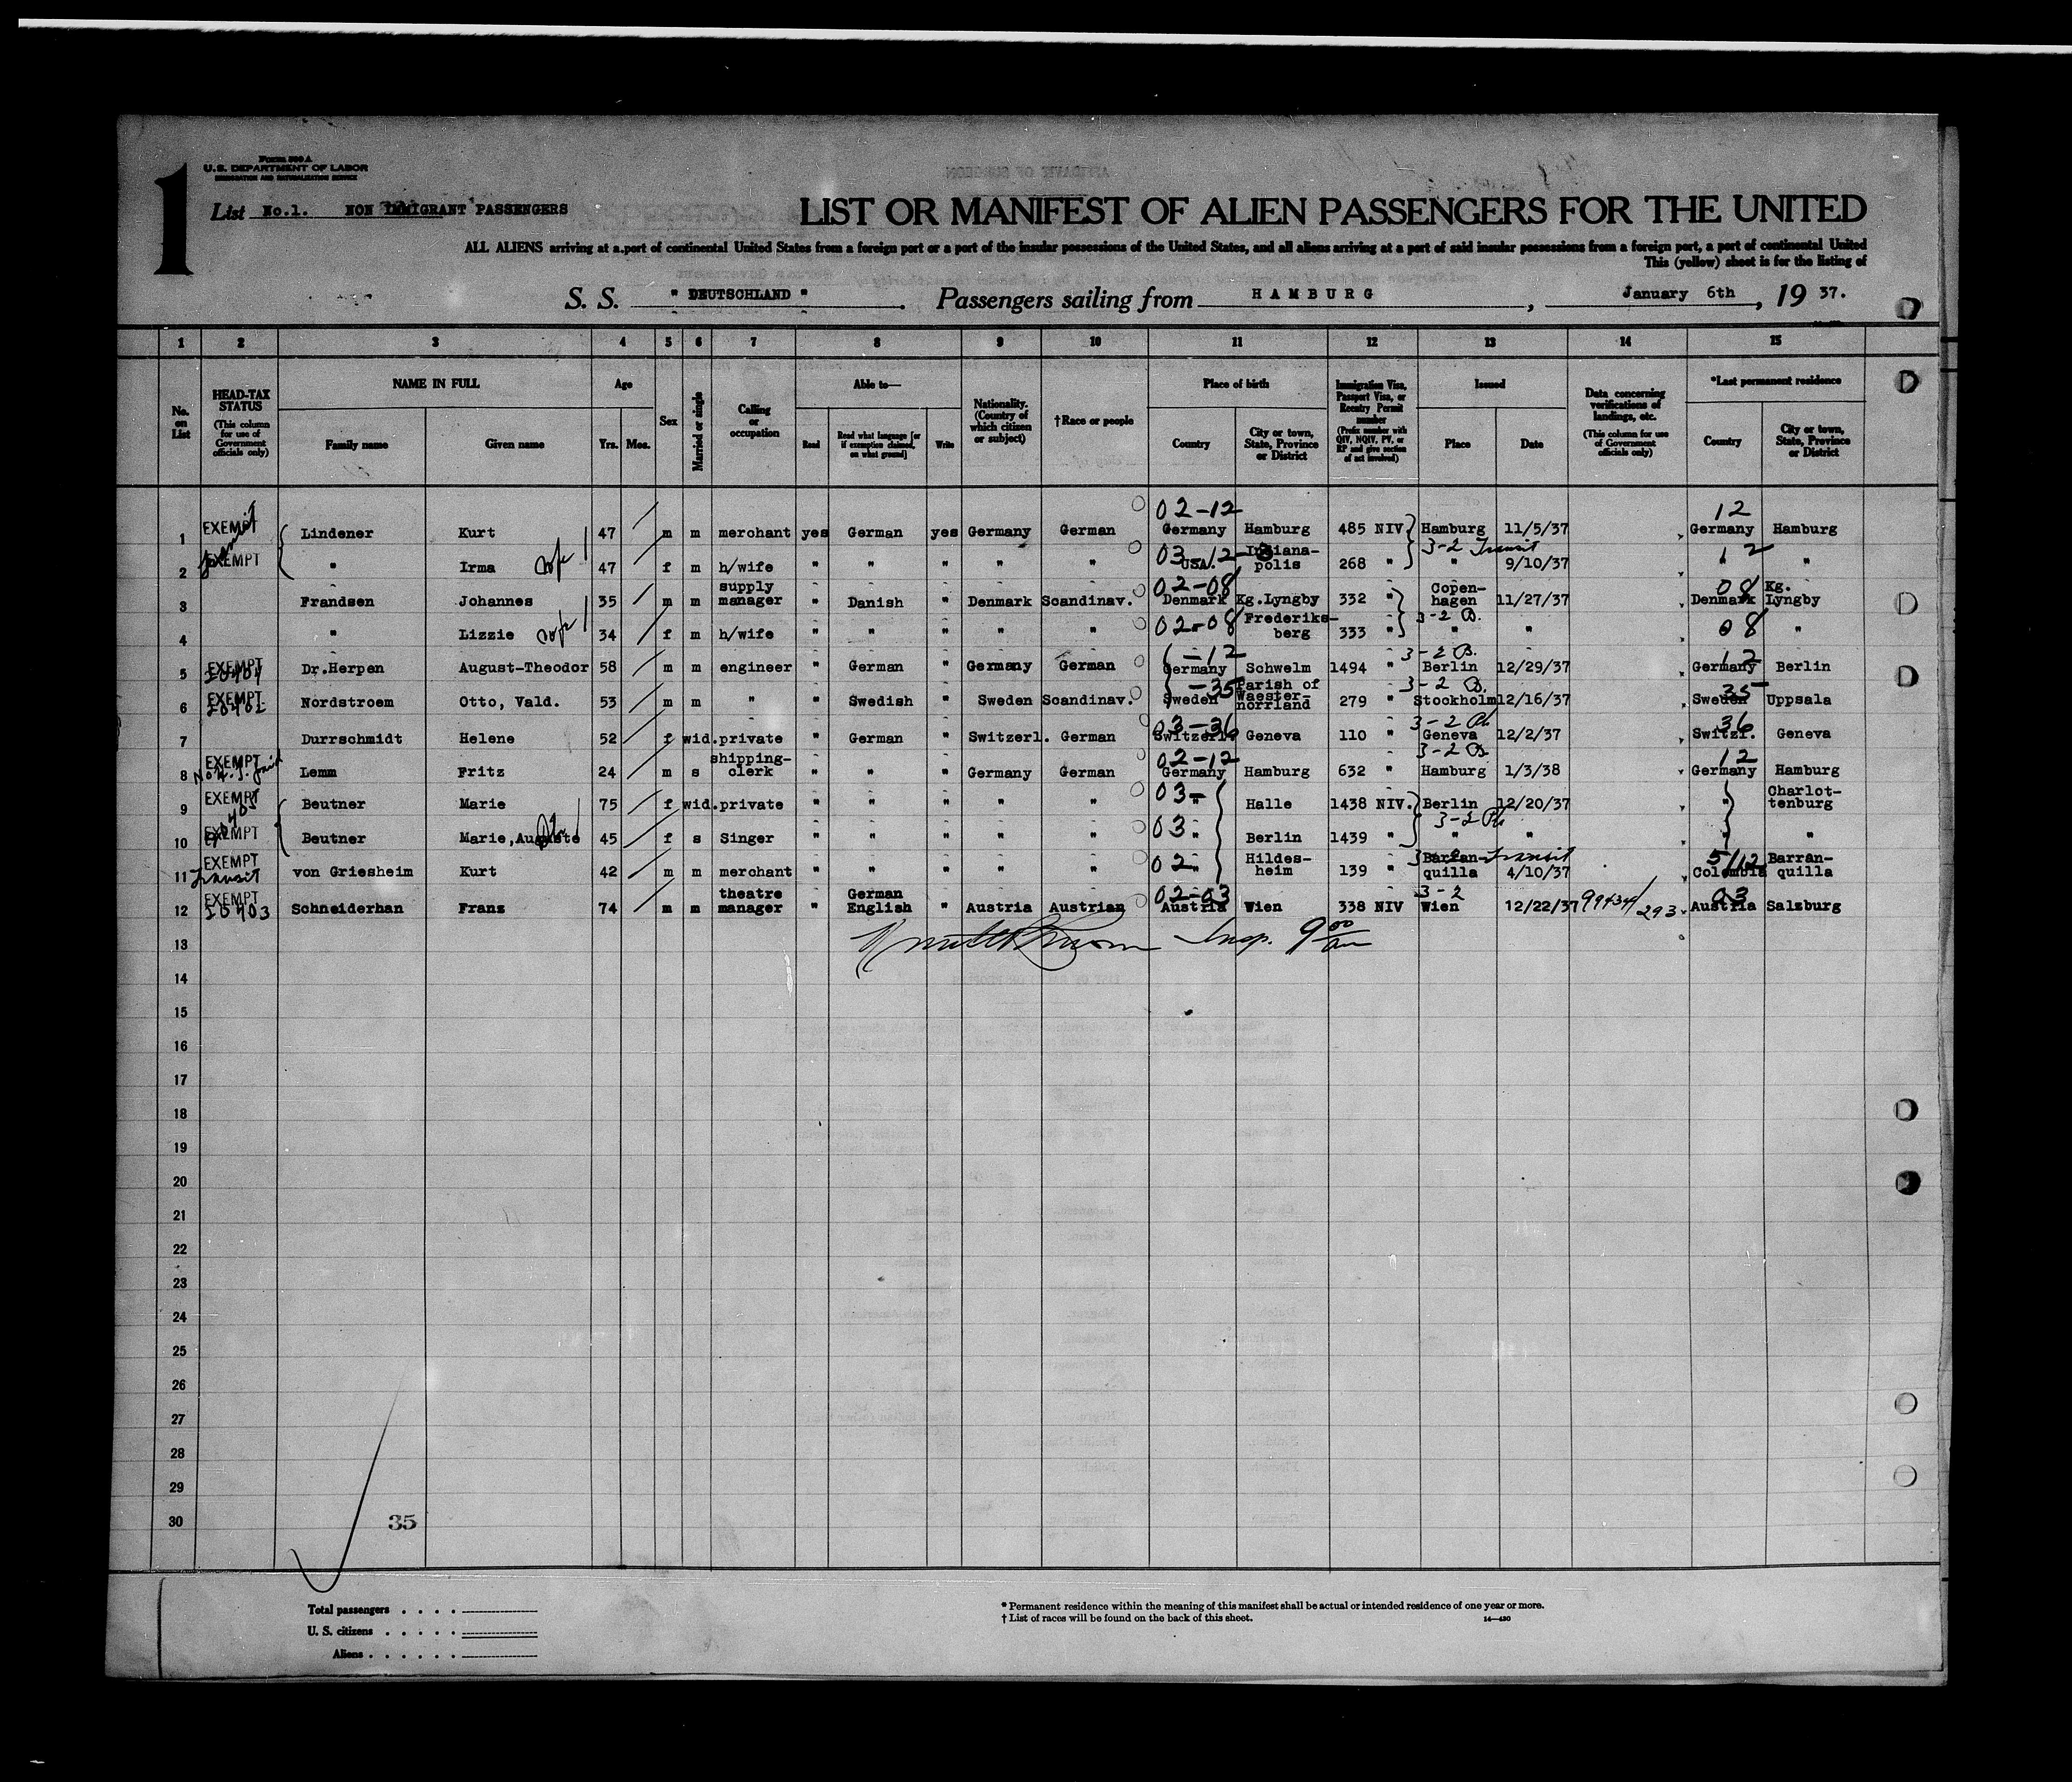 1
Form 500 A
U.S. DEPARTMENT OF LABOR
IMMIGRATION AND NATURALIZATION SERVICE
List No.1. NON IMMIGRANT PASSENGERS
LIST OR MANIFEST OF ALIEN PASSENGERS FOR THE UNITED
ALL ALIENS arriving at a port of continental United States from a foreign port or a port of the insular possessions of the United States, and all aliens arriving at a port of said insular possessions from a foreign port, a port of continental United
This (yellow) sheet is for the listing of
S. S. " DEUTSCHLAND ". Passengers sailing from HAMBURG, January 6th, 19 37.
1 2 3 4 5 6 7 8 9 10 11 12 13 14 15
No. on List
HEAD-TAX STATUS (This column for use of Government officials only)
NAME IN FULL
Family name Given name
Age
Yrs. Mos.
Sex
Married or single
Calling or occupation
Able to—
Read Read what language [or if exemption claimed, on what ground] Write
Nationality. (Country of which citizen or subject)
†Race or people
Place of birth
Country City or town, State, Province or District
Immigration Visa, Passport Visa, or Reentry Permit number (Prefix number with QIV, NQIV, PV, or RP and give section of act involved)
Issued
Place Date
Data concerning verifications of landings, etc. (This column for use of Government officials only)
*Last permanent residence
Country City or town, State, Province or District
02-12 12
1 EXEMPT Lindener Kurt 47 m m merchant yes German yes Germany German Germany Hamburg 485 NIV Hamburg 11/5/37 Germany Hamburg
transit 03-12 3-2 Transit 12
2 EXEMPT " Irma 47 f m h/wife " " " " " USA. Indiana-polis 268 " " 9/10/37 "
02-08 08
3 Frandsen Johannes 35 m m supply manager " Danish " Denmark Scandinav. Denmark Kg.Lyngby 332 " Copen-hagen 11/27/37 Denmark Kg. Lyngby
3-2 B.
4 " Lizzie 34 f m h/wife " " " " " 02-08 Frederiks-berg 333 " " " 08 "
-12 3-2 B. 12
5 EXEMPT Dr.Herpen August-Theodor 58 m m engineer " German " Germany German Germany Schwelm 1494 " Berlin 12/29/37 Germany Berlin
-35 3-2 B. 35
6 EXEMPT Nordstroem Otto, Vald. 53 m m " " Swedish " Sweden Scandinav. Sweden Parish of Waester-norrland 279 " Stockholm 12/16/37 Sweden Uppsala
03-36 36
7 Durrschmidt Helene 52 f wid. private " German " Switzerl. German Switzerl. Geneva 110 " Geneva 12/2/37 Switzl. Geneva
02-12 3-2 B. 12
8 EXEMPT Lemm Fritz 24 m s shipping-clerk " " " Germany German Germany Hamburg 632 " Hamburg 1/3/38 Germany Hamburg
9 EXEMPT Beutner Marie 75 f wid. private " " " " " 03- Halle 1438 NIV. Berlin 12/20/37 " Charlot-tenburg
10 EXEMPT Beutner Marie,Auguste 45 f s Singer " " " " " 03 " Berlin 1439 " " " " "
11 EXEMPT Transit von Griesheim Kurt 42 m m merchant " " " " " 02 " Hildes-heim 139 " Barran-quilla Transit 4/10/37 Colombia Barran-quilla
02-03 3-2 03
12 EXEMPT Schneiderhan Franz 74 m m theatre manager " German English " Austria Austrian Austria Wien 338 NIV Wien 12/22/37 Austria Salzburg
13 Insp. 9 00 am
14
15
16
17
18
19
20
21
22
23
24
25
26
27
28
29
30
35
Total passengers
U. S. citizens
Aliens
* Permanent residence within the meaning of this manifest shall be actual or intended residence of one year or more.
† List of races will be found on the back of this sheet. 14—430